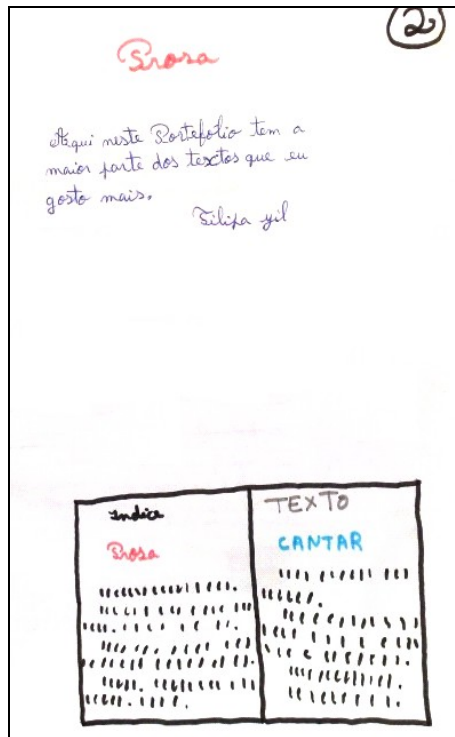 2
Prosa
Aqui neste Portefolio tem a
maior parte dos textos que eu
gosto mais.
Filipa gil
Indice
Prosa
TEXTO
CANTAR